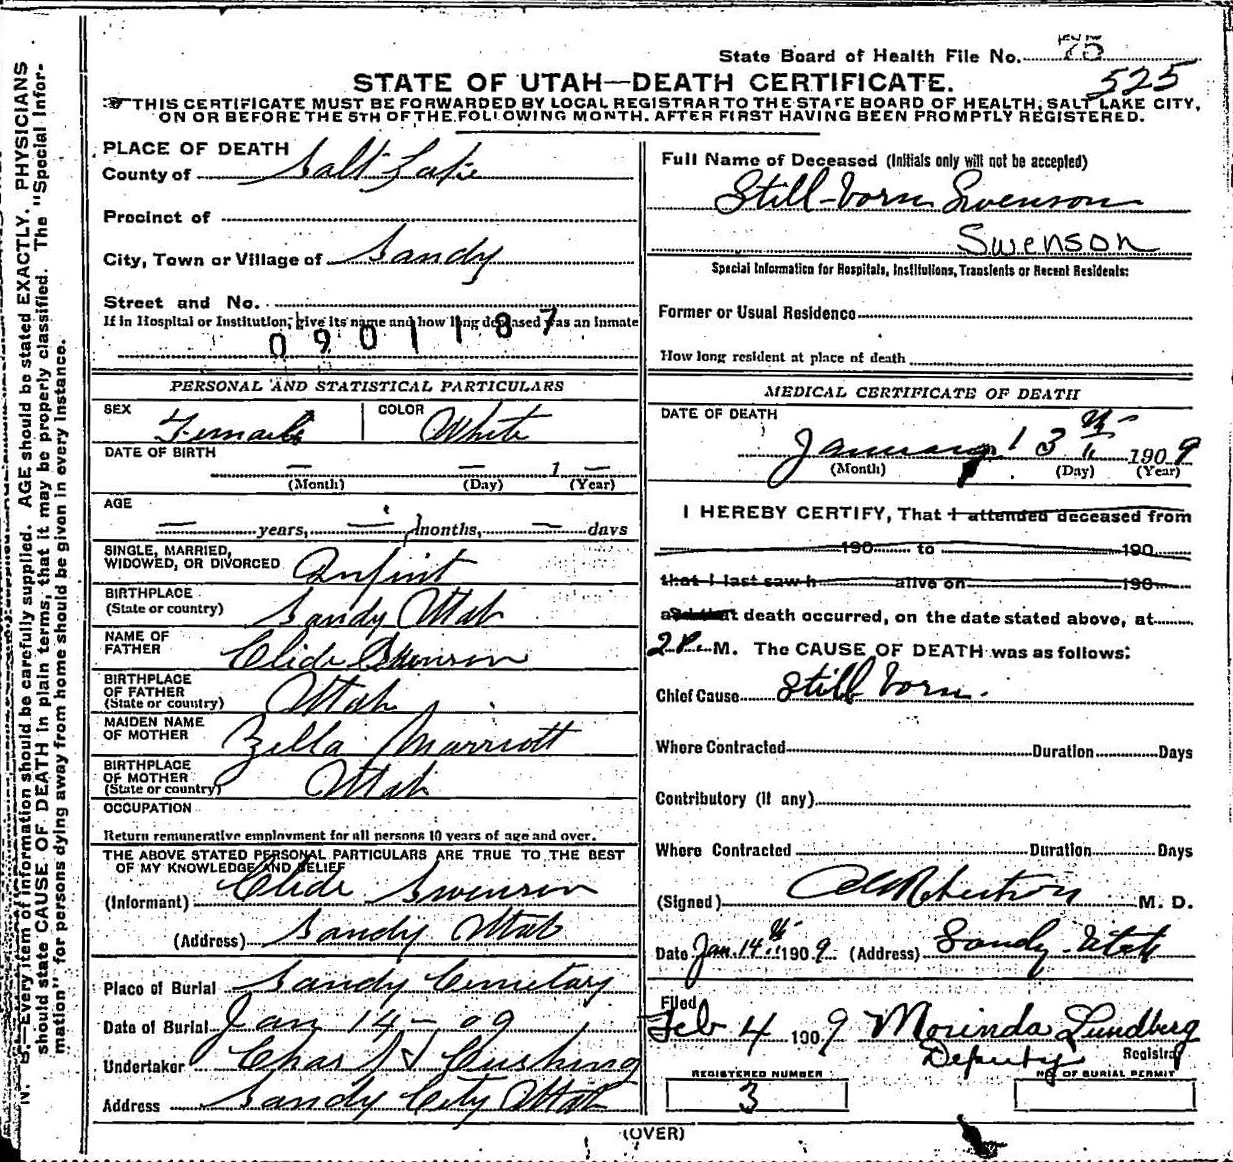 State Board of Health File No. 75
525
STATE OF UTAH—DEATH CERTIFICATE.
THIS CERTIFICATE MUST BE FORWARDED BY LOCAL REGISTRAR TO THE STATE BOARD OF HEALTH, SALT LAKE CITY,
ON OR BEFORE THE 5TH OF THE FOLLOWING MONTH. AFTER FIRST HAVING BEEN PROMPTLY REGISTERED.
PLACE OF DEATH
County of Salt Lake
Precinct of
City, Town or Village of Sandy
Street and No.
If in Hospital or Institution, give its name and how long deceased was an inmate
0901187
PERSONAL AND STATISTICAL PARTICULARS
SEX Female COLOR White
DATE OF BIRTH
— — 1 —
(Month) (Day) (Year)
AGE
— years, — months, — days
SINGLE, MARRIED,
WIDOWED, OR DIVORCED Infint
BIRTHPLACE
(State or country) Sandy Utah
NAME OF
FATHER Clide Swenson
BIRTHPLACE
OF FATHER
(State or country) Utah
MAIDEN NAME
OF MOTHER Zella Marriott
BIRTHPLACE
OF MOTHER
(State or country) Utah
OCCUPATION
Return remunerative employment for all persons 10 years of age and over.
THE ABOVE STATED PERSONAL PARTICULARS ARE TRUE TO THE BEST
OF MY KNOWLEDGE AND BELIEF
(Informant) Clide Swenson
(Address) Sandy Utah
Place of Burial Sandy Cemetary
Date of Burial Jan 14 - 09
Undertaker Chas Cushing
Address Sandy City Utah
Full Name of Deceased (Initials only will not be accepted)
Still-born Swenson
Swenson
Special Information for Hospitals, Institutions, Transients or Recent Residents:
Former or Usual Residence
How long resident at place of death
MEDICAL CERTIFICATE OF DEATH
DATE OF DEATH
January 13th 1909
(Month) (Day) (Year)
I HEREBY CERTIFY, That I attended deceased from
190 to 190
that I last saw h alive on 190
and that death occurred, on the date stated above, at
2 P. M. The CAUSE OF DEATH was as follows:
Chief Cause Still born.
Where Contracted Duration Days
Contributory (if any)
Where Contracted Duration Days
(Signed) Robertson M. D.
Date Jan. 14th 1909 (Address) Sandy Utah
Filed
Feb 4 1909 Morinda Lundberg
Deputy Registrar
REGISTERED NUMBER
3
NO. OF BURIAL PERMIT
(OVER)
N. B.—Every item of information should be carefully supplied. AGE should be stated EXACTLY. PHYSICIANS
should state CAUSE OF DEATH in plain terms, that it may be properly classified. The "Special Infor-
mation" for persons dying away from home should be given in every instance.